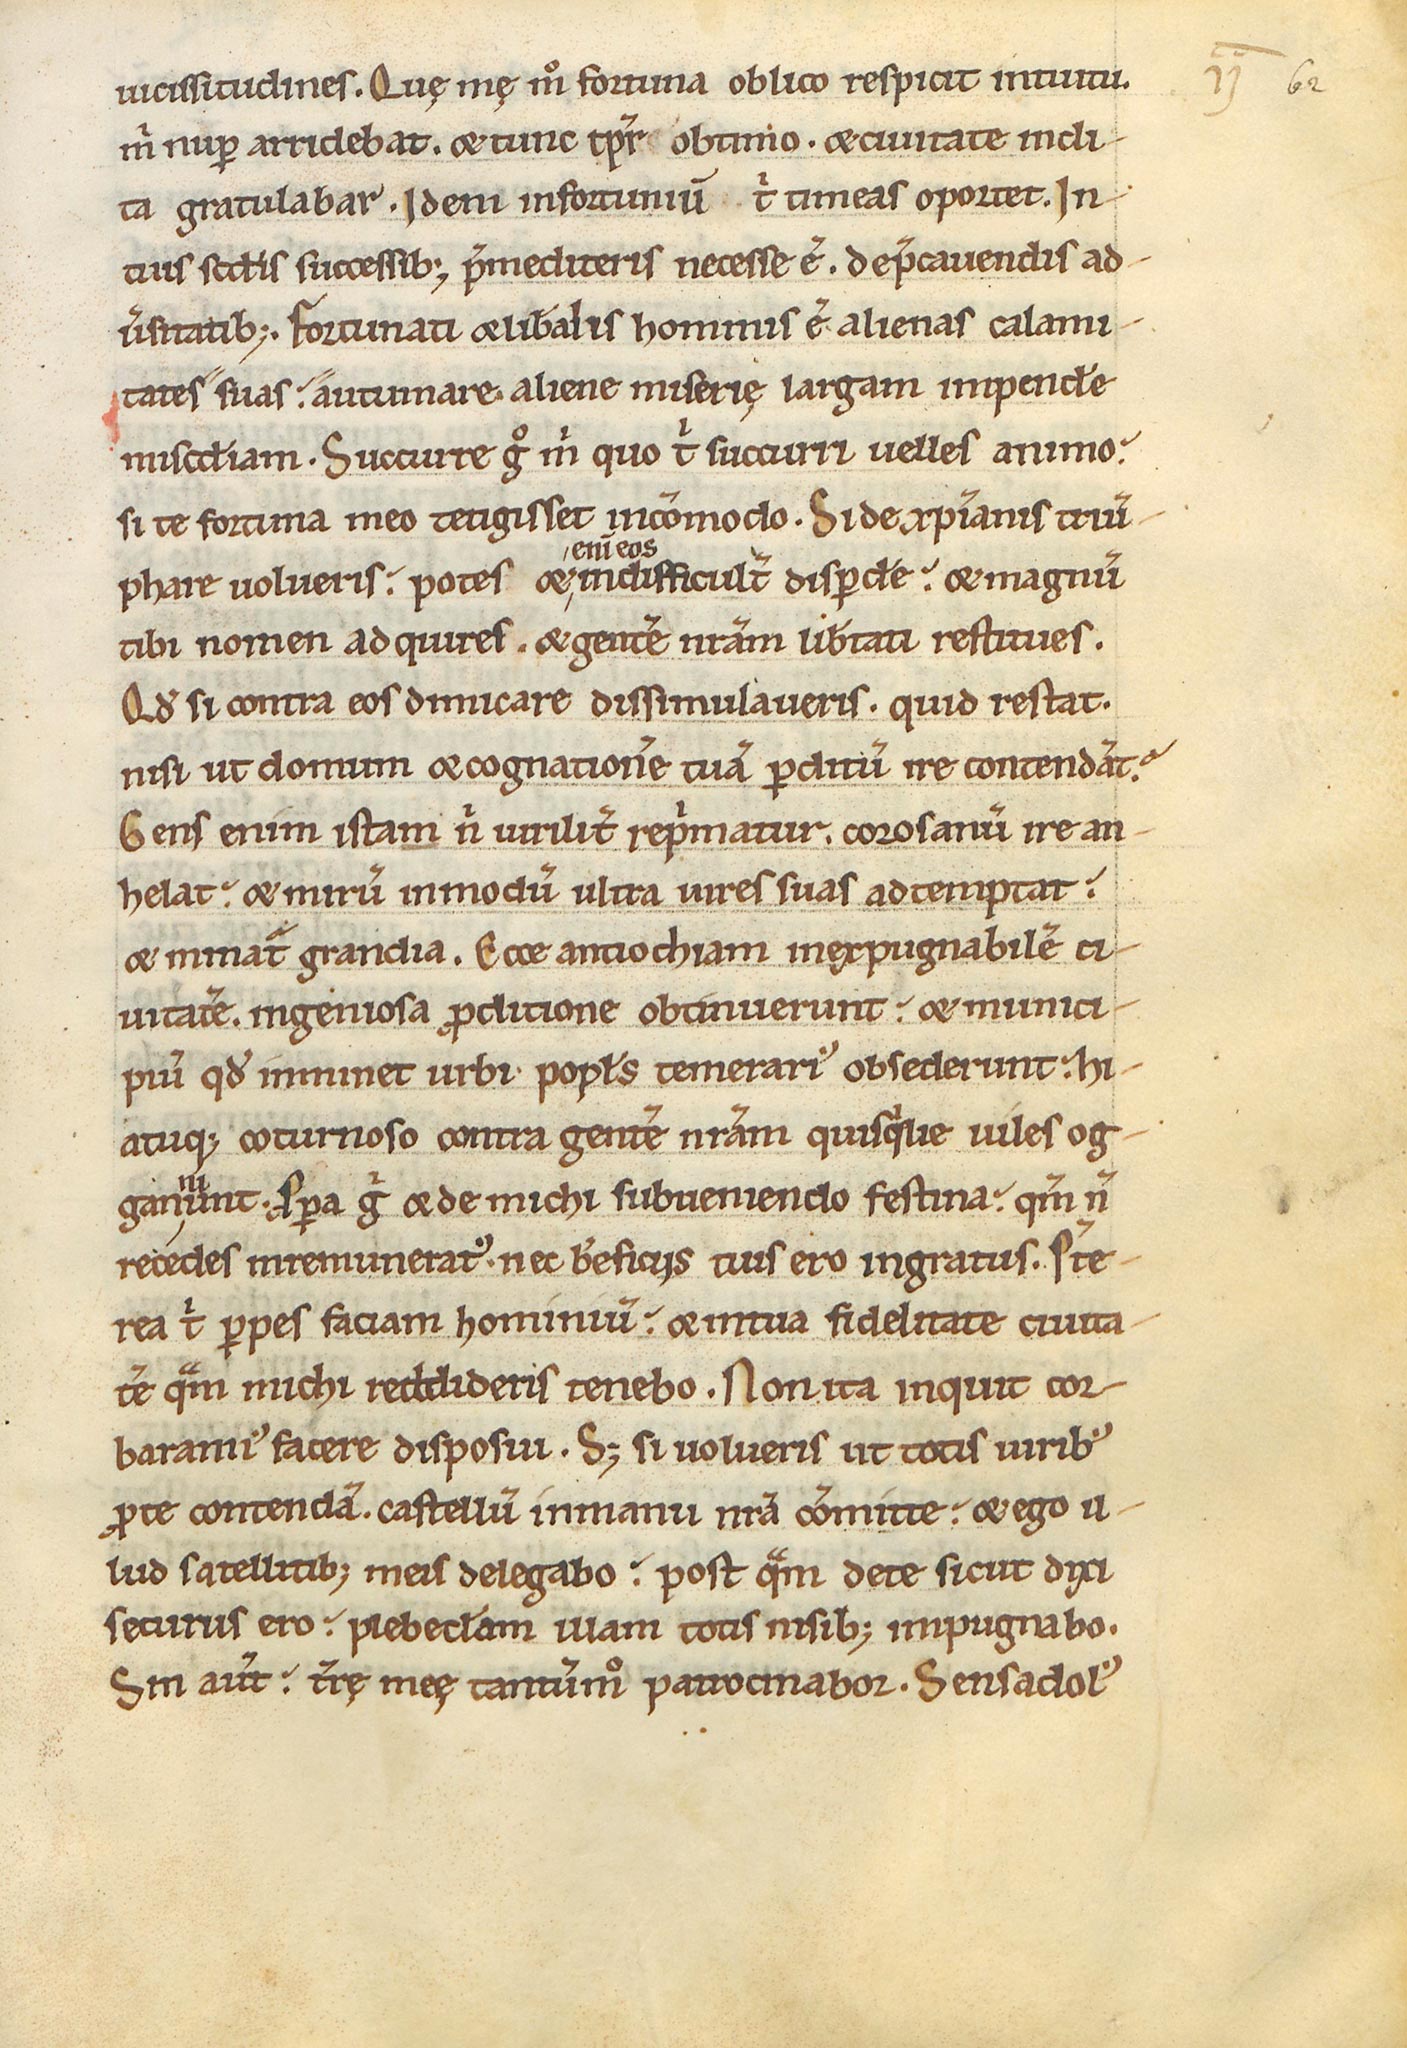 uicissitudines. Quę mę m̊ fortuna oblico respicit intuitu. ıȷ 62
m̍ nup̱ arridebat. & tunc tp̱r̃ obtimo. & ciuitate incli-
ta gratulabar̃. Idem infortuniū t̍ timeas oportet. In
tuis scd̃is successib; p̃mediteris necesse ẽ. de p̃cauendis ad-
ũsitatib;. Fortunati & lib̃alis hominis ẽ alienas calami-
tates suas autumare. aliene miserię largam impend̃e
misc̃diam. Succurre g̊ m̍ quo t̍ succurri uelles animo.
si te fortuna meo tetigisset incõmodo. Si de xp̃ianis triũ-
phare uolueris. potes & enĩ eos indifficult̃ disp̱d̃e. & magnũ
tibi nomen adquires. & gentẽ nr̃am lib̃tati restitues.
Qđ si contra eos dimicare dissimulaueris. quid restat.
nisi ut domum & cognationẽ tuã p̱ditũ ire contendãt.
Gens enim istam n̍ uirilit̃ rep̍matur. corosanũ ire an-
helat. & mirũ inmodũ ultra uires suas adtemptat.
& minat̃ grandia. Ecce antiochiam inexpugnabilẽ ci-
uitatẽ. ingeniosa ꝓditione obtinuerunt. & munici-
piũ qđ imminet urbi. popl̃s temerari᾿ obsederunt. hi-
atuq; coturnoso contra gentẽ nr̃am quisq̍lie uiles og-
ganniunt. Sp̱a g̍ & de michi subueniendo festina. qm̃ ñ
recedes inremunerat᾿. nec b̃eficijs tuis ero ingratus. P̃te-
rea t̍ p̱pes faciam hominiũ. & in tua fidelitate ciuita-
tẽ qᵃm michi reddideris tenebo. Non ita inquit cor-
barami᾿ facere disposui. S; si uolueris ut totis uirib᾿
ꝓ te contendã. castellũ in manu nr̃a cõmitte. & ego il-
lud satellitib; meis delegabo. post qᵃm de te sicut dixi
securus ero. plebeculam illam totis nisib; impugnabo.
Sin aut̃. t̃rę meę tantũm̊ patrocinabor. Sensadol᾿